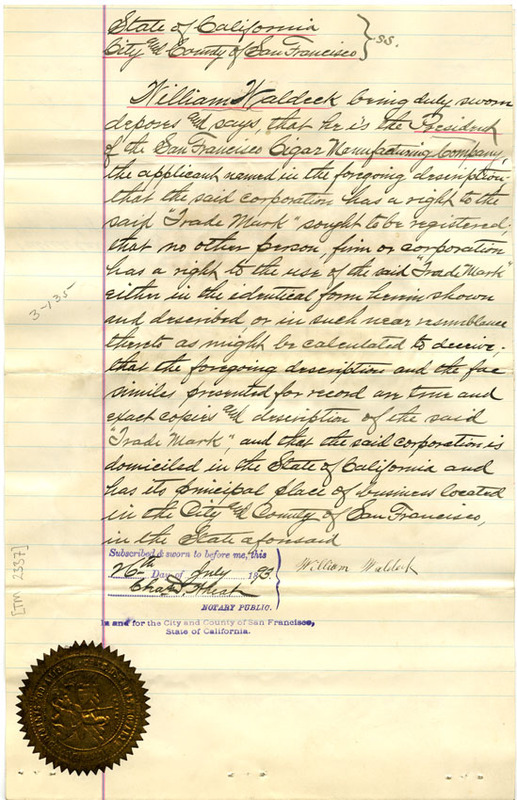 State of California
City and County of San Francisco } ss.
William Waldeck being duly sworn
deposes and says, that he is the President
of the San Francisco Cigar Manufacturing Company,
the applicant named in the foregoing description
that the said corporation has a right to the
said "Trade Mark" sought to be registered;
that no other person, firm or corporation
has a right to the use of the said "Trade Mark"
either in the identical form herein shown
and described, or in such near resemblance
thereto as might be calculated to deceive;
that the foregoing description and the fac
similes presented for record are true and
exact copies and description of the said
"Trade Mark", and that the said corporation is
domiciled in the State of California and
has its principal place of business located
in the City and County of San Francisco,
in the State aforesaid
3-135
[TM 2337]
Subscribed & sworn to before me, this
26th Day of July 1893.
William Waldeck
NOTARY PUBLIC.
In and for the City and County of San Francisco,
State of California.